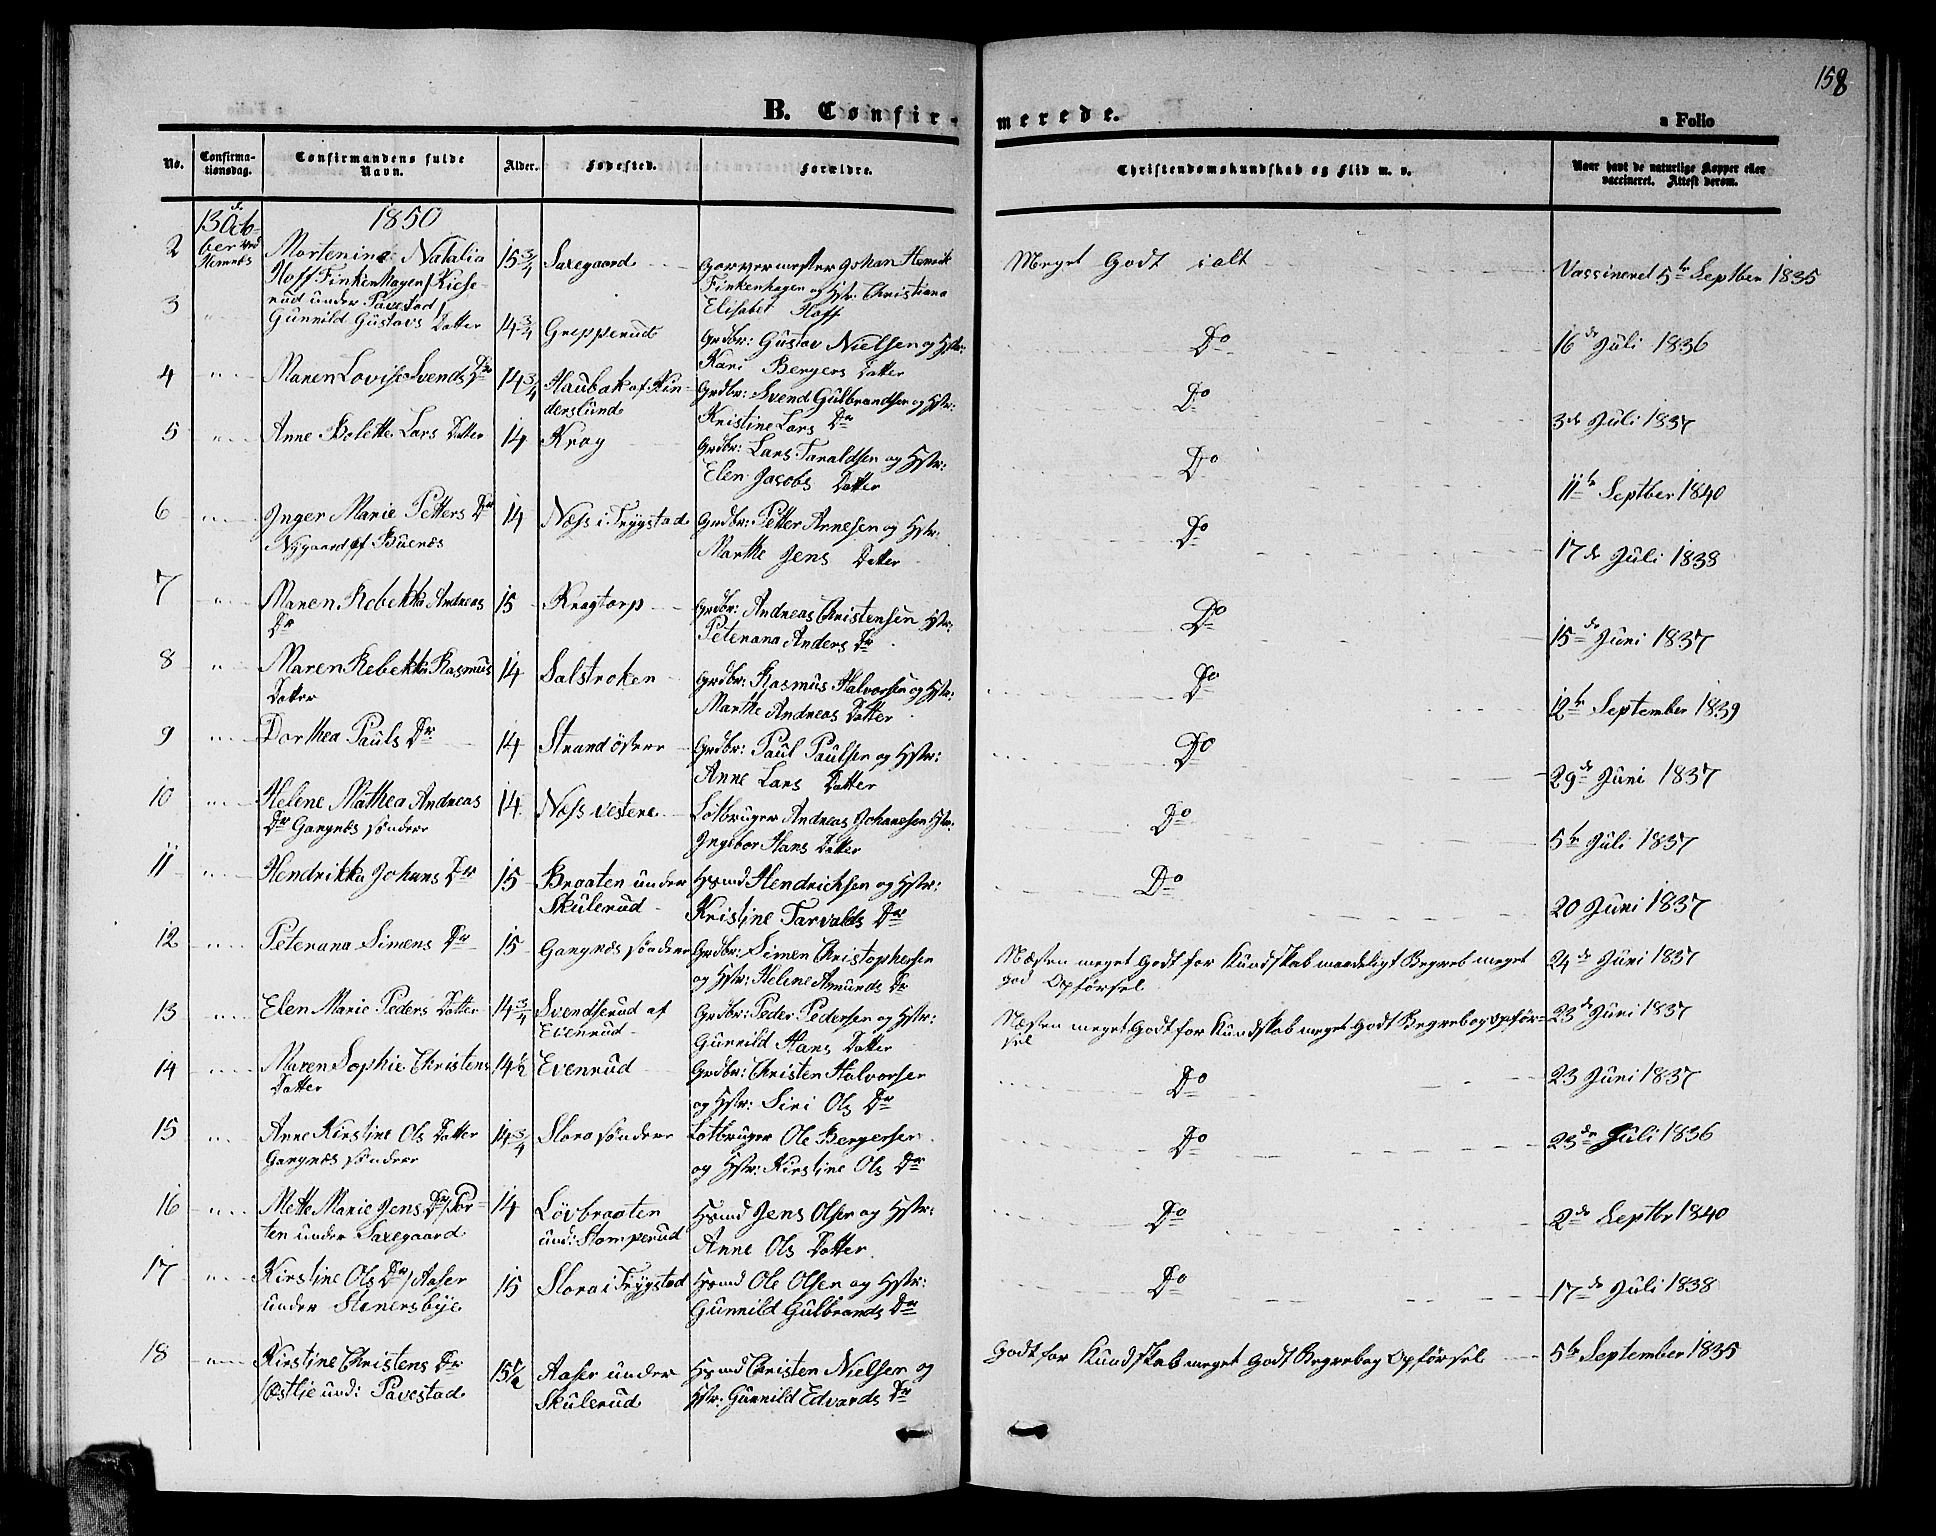 158
B. Confir-
merede.
a Folio
No.
Confirma-
tionsdag.
Confirmandens fulde
Navn.
Alder.
Fødested.
Forældre.
Christendomskundskab og Flid m. v.
Naar havt de naturlige Kopper eller
vaccineret. Attest derom.
13de Octo-
ber ved
Hemnæs
1850
2 Mortenine Natalia
Hoff Finkenhagen / Kiese-
rud under Pavestad /
15 3/4 Saxegaard
Garvermester Johan Henrik
Finkenhagen og Hstr: Christiana
Elisabet Hoff
Meget Godt ialt
Vassineret 5te Septber 1835
3 " Gunnild Gustavs Datter 14 3/4 Grepperud
Grdbr: Gustav Nielsen og Hstr:
Kari Bergers Datter
Do
16de Juli 1836
4 " Maren Lovise Svends Dtr 14 3/4 Haubak af Kin-
derslund
Grdbr: Svend Gulbrandsen og Hstr:
Kristine Lars Dr
Do
3de Juli 1837
5 " Anne Bolette Lars Datter 14 Krog
Grdbr: Lars Taraldsen og Hstr:
Elen Jacobs Datter
Do
11te Septber 1840
6 " Inger Marie Petters Dr 14 Næss i Trygstad
Nygaard af Buenæs
Grdbr: Petter Arnesen og Hstr:
Marthe Jens Datter
Do
17de Juli 1838
7 " Maren Rebekka Andreas 15 Kragtorp
Dr
Grdbr: Andreas Christensen Hstr:
Peternana Anders Dr
Do
15de Juni 1837
8 " Maren Rebekka Rasmus 14 Salstroken
Datter
Grdbr: Rasmus Halvorsen og Hstr:
Marthe Andreas Datter
Do
12te September 1839
9 " Dorthea Pauls Dr 14 Strand østere
Grdbr: Paul Paulsen og Hstr:
Anne Lars Datter
Do
29de Juni 1837
10 " Helene Mathea Andreas 14 Næss vestene
Dr Gangnæs søndere
Lotbruger Andreas Johanesen Hstr:
Ingebor Hans Datter
Do
5te Juli 1837
11 " Hendrikka Johans Dr 15 Braaten under
Skulerud
Hsmd Hendrichsen og Hstr:
Kristine Tarvalds Dr
Do
20 Juni 1837
12 " Petenana Simens Dr 15 Gangnæs søndere
Grdbr: Simen Christophersen
og Hstr: Helene Amunds Dr
Næsten meget Godt for Kundskab maadeligt Begreb meget
god Opførsel
24de Juni 1837
13 " Elen Marie Peders Datter 14 3/4 Svendserud af
Evenrud
Grdbr: Peder Pedersen og Hstr:
Gunnild Hans Datter
Næsten meget Godt for Kundskab meget Godt Begreb og Opfør-
sel
23de Juni 1837
14 " Maren Sophie Christens 14 1/2 Evenrud
Datter
Grdbr: Christen Halvorsen
og Hstr: Siri Ols Dr
Do
23 Juni 1837
15 " Anne Kirstine Ols Datter 14 3/4 Slora søndere
Gangnæs søndere
Lotbruger Ole Bergersen
og Hstr: Kirstine Ols Dr
Do
23de Juli 1836
16 " Mette Marie Jens Dr / Por-
ten under Saxegaard
14 Løvbraaten
und: Stomperud
Hsmd Jens Olsen og Hstr:
Anne Ols Datter
Do
2de Septbr 1840
17 " Kirstine Ols Dr / Aaser
under Stenersbye
15 Slora i Trygstad
Hsmd Ole Olsen og Hstr:
Gunnild Gulbrands Dr
Do
17de Juli 1838
18 " Kirstine Christens Dr
/ Østlie und: Pavestad
15 1/2 Aaser under
Skulerud
Hsmd Christen Nielsen og
Hstr: Gunnild Edvards Dr
Godt for Kundskab meget Godt Begreb og Opførsel
5te September 1835